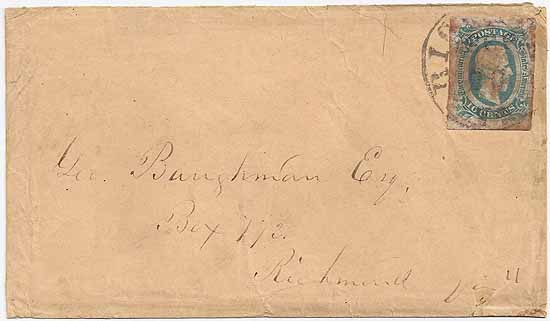 RIC
POSTAGE
TEN CENTS
Geo. Baughman Esq.
Box 773.
Richmond